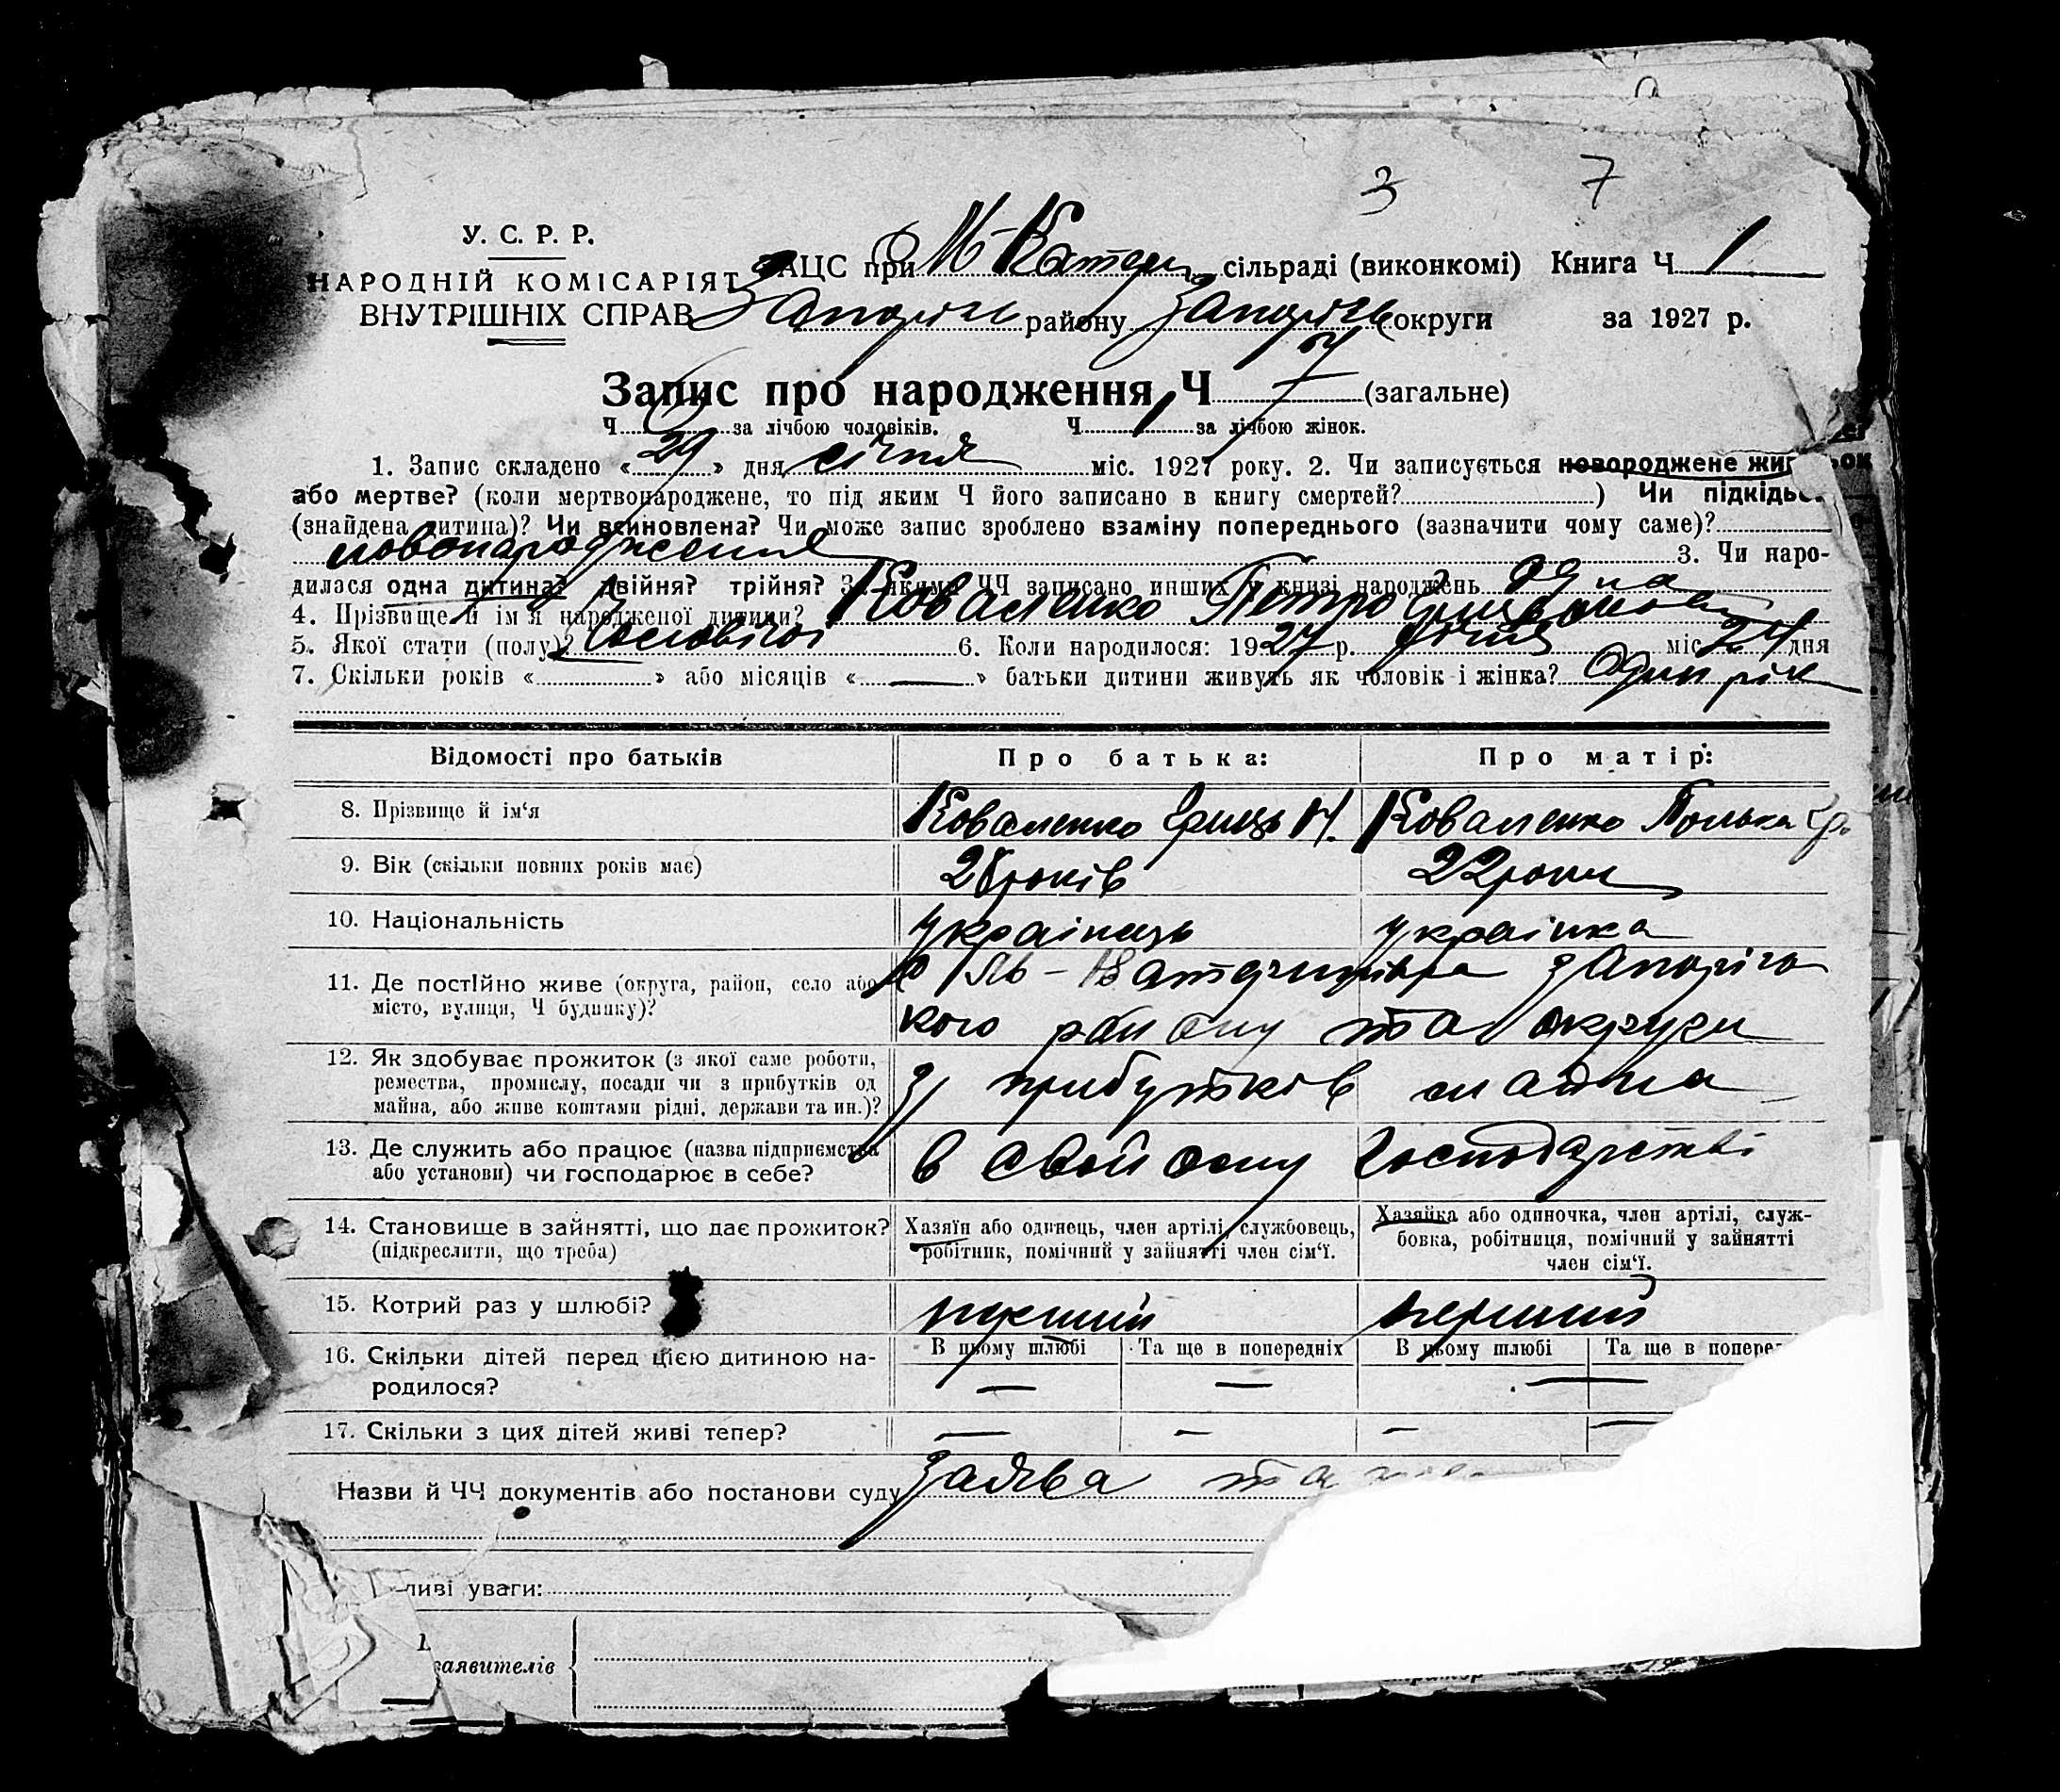 3 7
У. С. Р. Р.
НАРОДНІЙ КОМІСАРІЯТ
ВНУТРІШНІХ СПРАВ
ЗАЦС при М-Катер сільраді (виконкомі) Книга Ч. 1
Запоріж району Запоріж округи за 1927 р.
Запис про народження Ч. 7 (загальне)
Ч. за лічбою чоловіків. Ч. за лічбою жінок.
1. Запис складено « 29 » дня січня міс. 1927 року. 2. Чи записується новороджене жи
або мертве? (коли мертвонароджене, то під яким Ч його записано в книгу смертей? ) Чи підкідь
(знайдена дитина)? Чи всиновлена? Чи може запис зроблено взаміну попереднього (зазначити чому саме)?
новонароджения 3. Чи наро-
дилася одна дитина? двійня? трійня? За якими ЧЧ записано инших у книзі народжень одна
4. Прізвище й ім'я народженої дитини? Коваленко Петро
5. Якої стати (полу)? Чоловічої 6. Коли народилося: 1927 р. січня міс. 24 дня
7. Скільки років « » або місяців « — » батьки дитини живуть як чоловік і жінка? Один рік
Відомості про батьків Про батька: Про матір:
8. Прізвище й ім'я Коваленко Гриць Коваленко Полька Гр.
9. Вік (скільки повних років має) 28 років 22 роки
10. Національність українець українка
11. Де постійно живе (округа, район, село або
місто, вулиця, Ч будинку)?
Катеринівка Запорізь
кого району та округи
12. Як здобуває прожиток (з якої саме роботи,
ремества, промислу, посади чи з прибутків од
майна, або живе коштами рідні, держави та ин.)?
з прибутків майна
13. Де служить або працює (назва підприємства
або установи) чи господарює в себе?
в свойому господарстві
14. Становище в зайнятті, що дає прожиток?
(підкреслити, що треба)
Хазяїн або одинець, член артілі, службовець,
робітник, помічний у зайнятті член сім'ї.
Хазяйка або одиночка, член артілі, служ-
бовка, робітниця, помічний у зайнятті
член сім'ї.
15. Котрий раз у шлюбі? перший перший
16. Скільки дітей перед цією дитиною на-
родилося?
В цьому шлюбі Та ще в попередніх В цьому шлюбі Та ще в попере
— — —
17. Скільки з цих дітей живі тепер? — — — —
Назви й ЧЧ документів або постанови суду заява та
ливі уваги:
заявителів